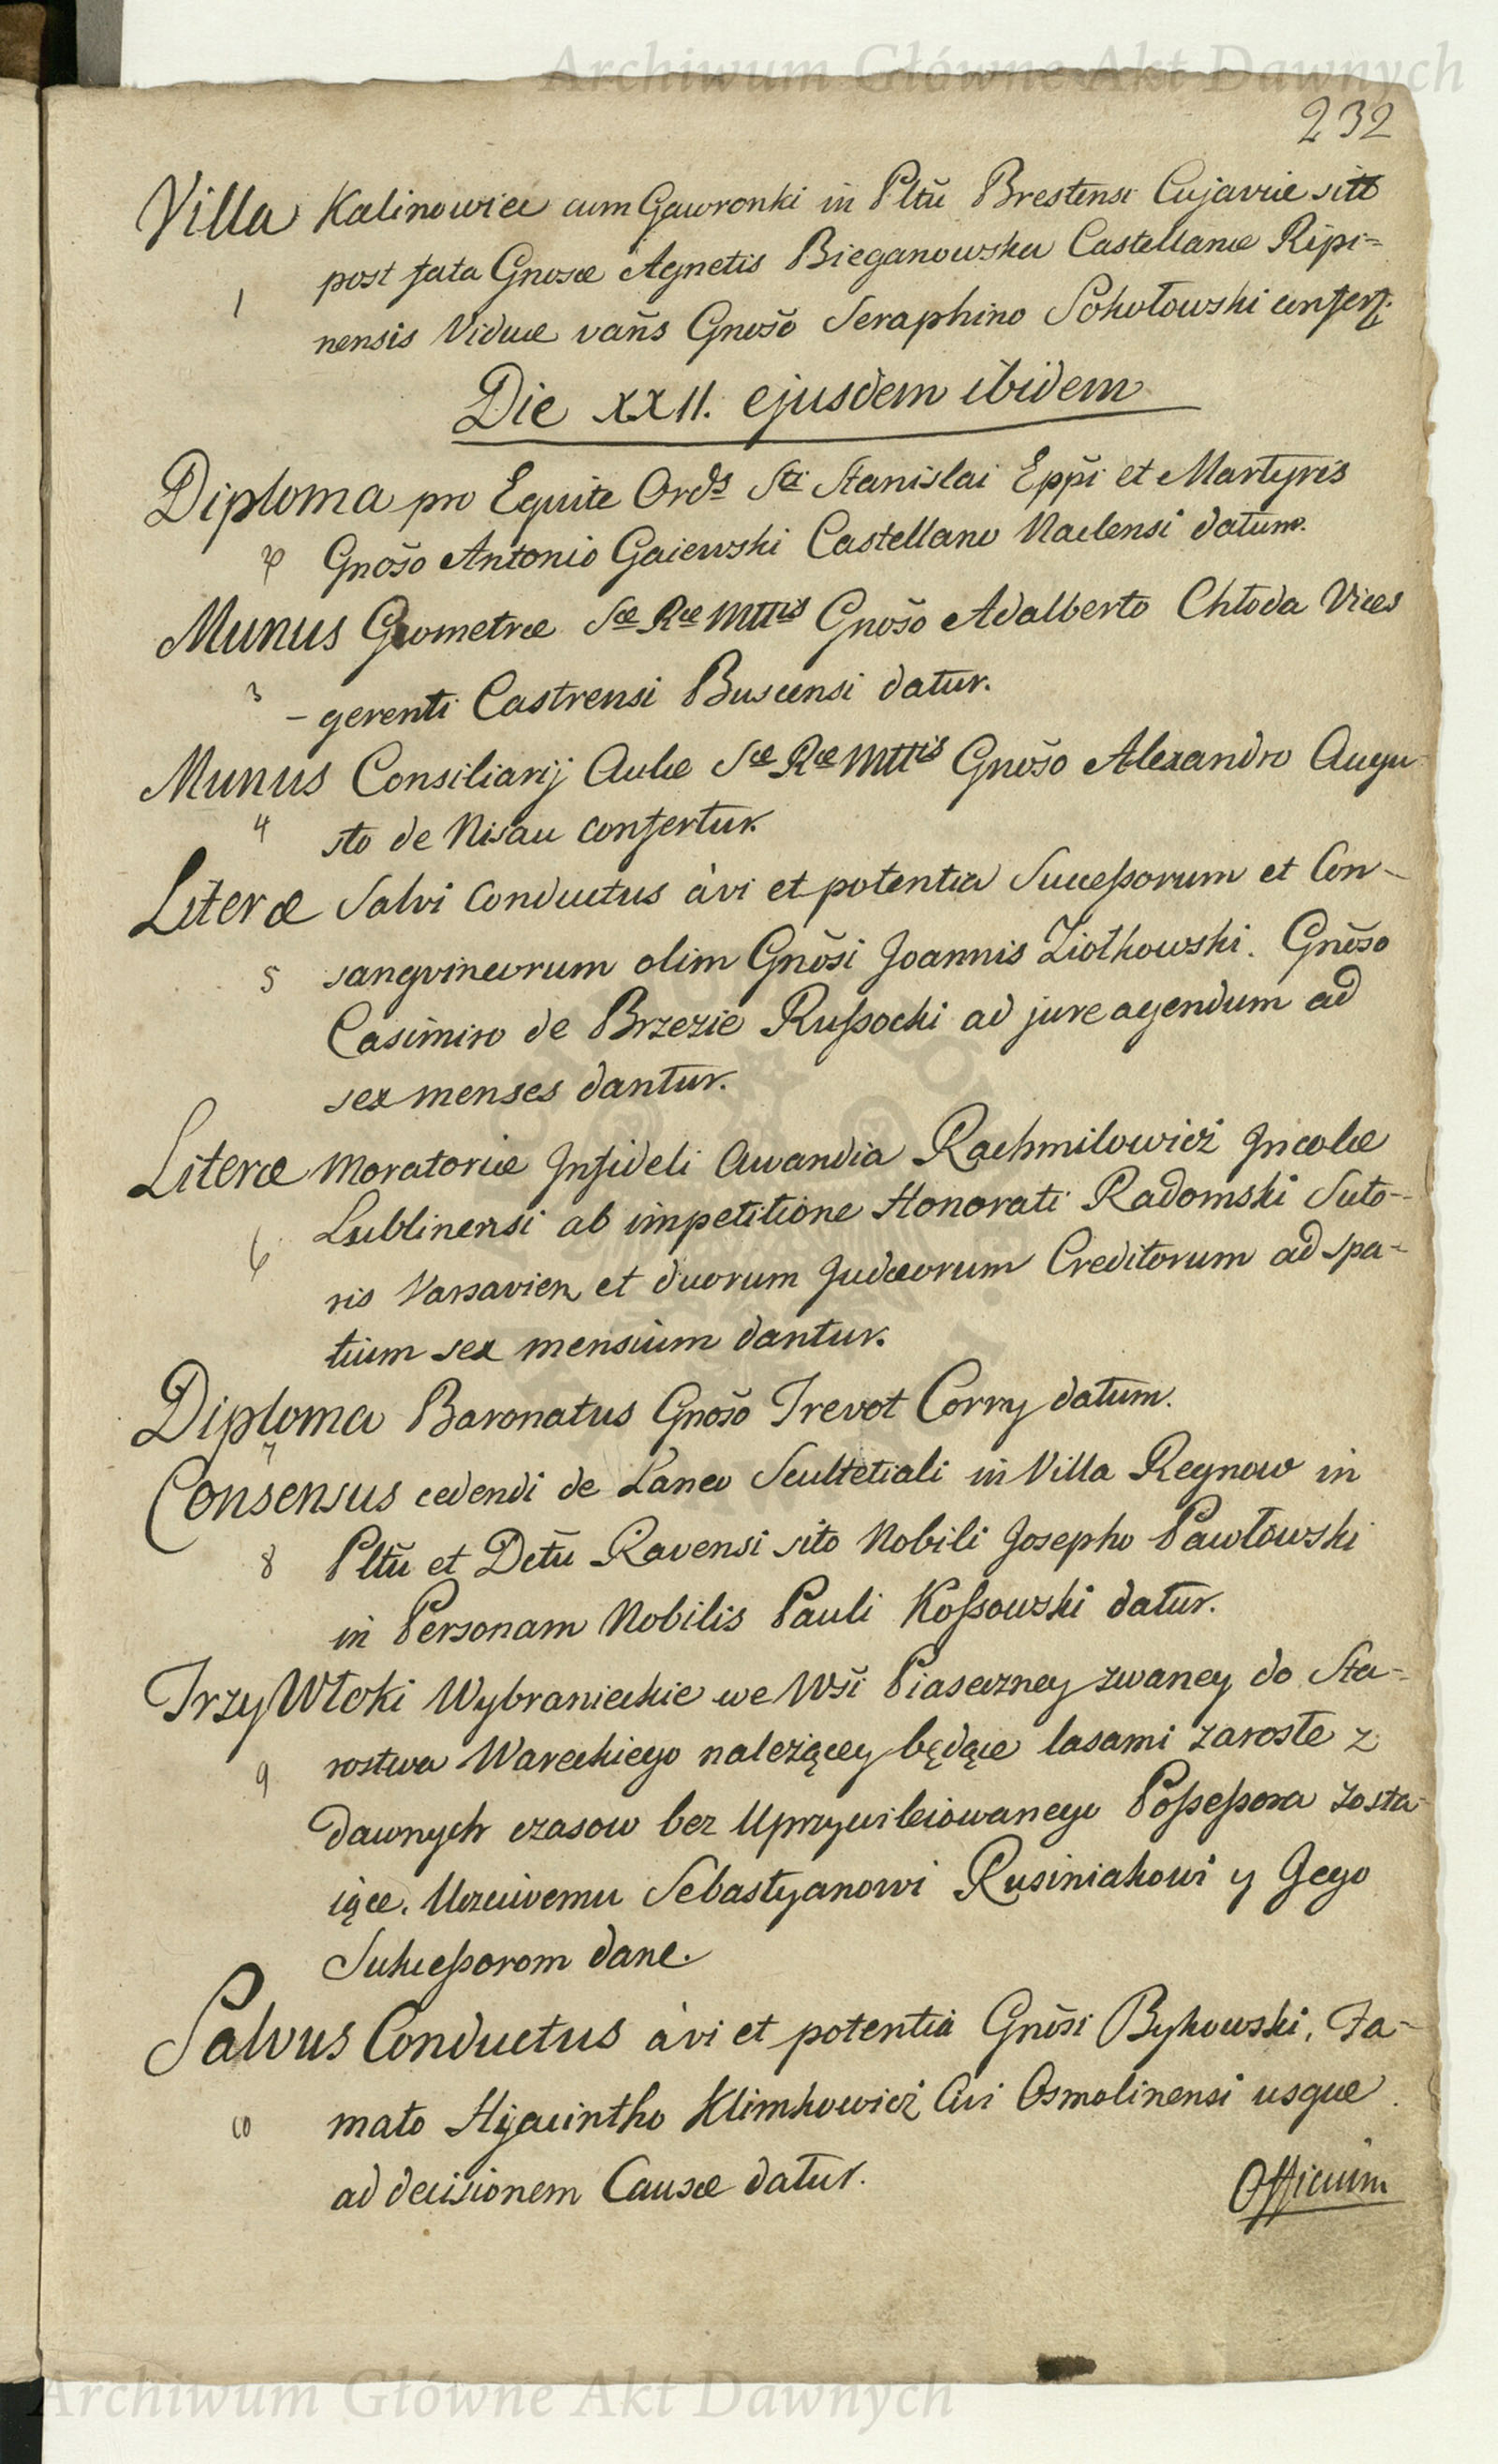 Archiwum Główne Akt Dawnych
232
Villa Kalinowice cum Gawronki in Pltũ Brestensi Cujaviæ sitt
post fata Gnosæ Agnetis Bieganowska Castellanæ Ripi=
1
nensis Viduæ vañs Gnošo Seraphino Sokołowski confert.
Die XXII. ejusdem ibidem
Diploma pro Equite Ords Sti Stanislai Eppi et Martyris
2 Gnošo Antonio Gaiewski Castellano Naclensi datum.
Munus Geometræ Sæ Ræ Mttis Gnošo Adalberto Chłoda Vices
3 - gerenti Castrensi Buscensi datur.
Munus Consiliarij Aulæ Sæ Ræ Mttis Gnošo Alexandro Augu-
4 sto de Nisau confertur.
Literæ Salvi Conductus àvi et potentia Successorum et Con-
5 sangvineorum olim Gnõsi Joannis Ziołkowski. Gnõso
Casimiro de Brzezie Russocki ad jure agendum ad
sex menses dantur.
Literæ Moratoriæ Infideli Awandia Rachmilowicz Incolæ
Lublinensi ab impetitione Honorati Radomski Suto-
6
ris Varsavien et duorum Judæorum Creditorum ad spa-
tium sex mensium dantur.
Diploma Baronatus Gnošo Trevot Corry datum.
7
Consensus cedendi de Laneo Scultetiali in Villa Regnow in
8 Pltũ et Dctũ Ravensi sito Nobili Josepho Pawłowski
in Personam Nobilis Pauli Kossowski datur.
Trzy Włoki Wybranieckie we Wsi Piaseczney zwaney do Sta-
9 rostwa Wareckiego należącey będące lasami zarosłe z
dawnych czasow bez Uprzywileiowanego Possessora zosta-
iące. Uczciwemu Sebastyanowi Rusiniakowi y Jego
Sukcessorom dane.
Salvus Conductus àvi et potentia Gnõsi Bykowski, Fa-
10 mato Hyacintho Klimkowicz Civi Osmolinensi usque
ad decisionem Causæ datur.
Officium
Archiwum Główne Akt Dawnych